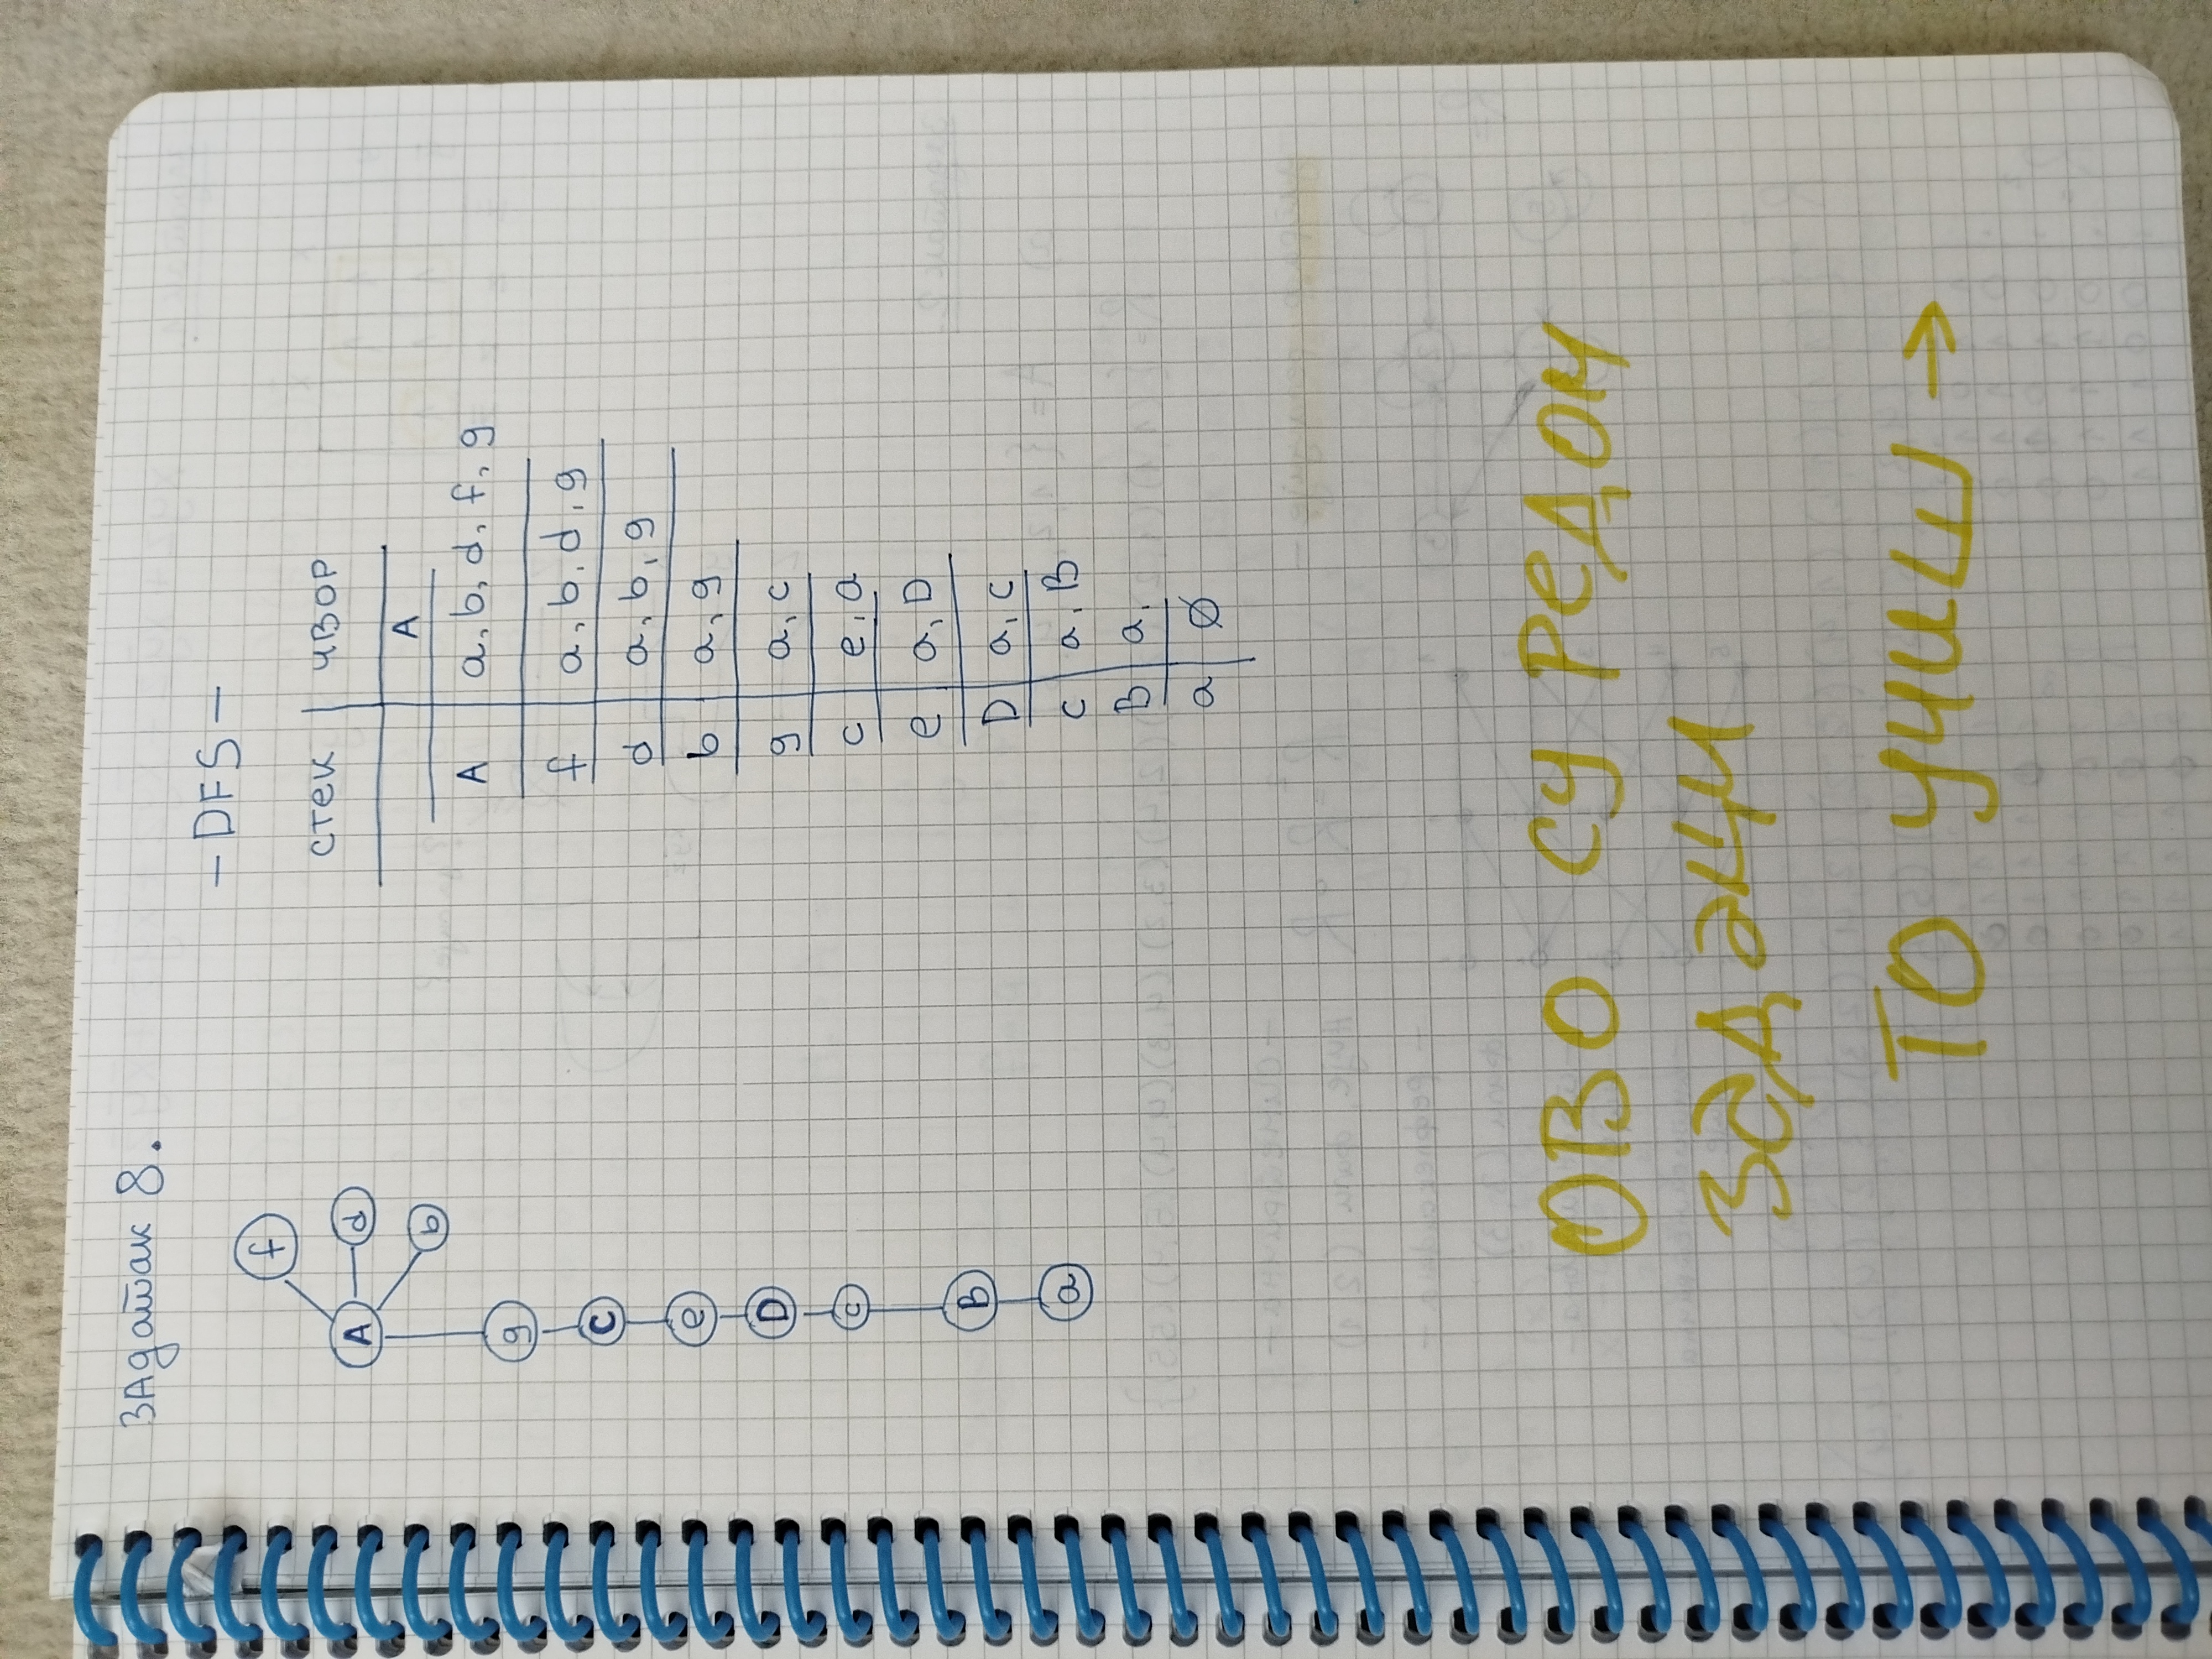 ЗАдатак 8.
f
d
A
b
g
C
e
D
c
B
a
-DFS-
стек чвор
A
A a, b, d, f, g
f a, b, d, g
d a, b, g
b a, g
g a, c
c e, a
e a, D
D a, c
c a, B
B a,
a Ø
ОВО СУ РЕДОМ
ЗАДАЦИ
ТО УЧИШ →